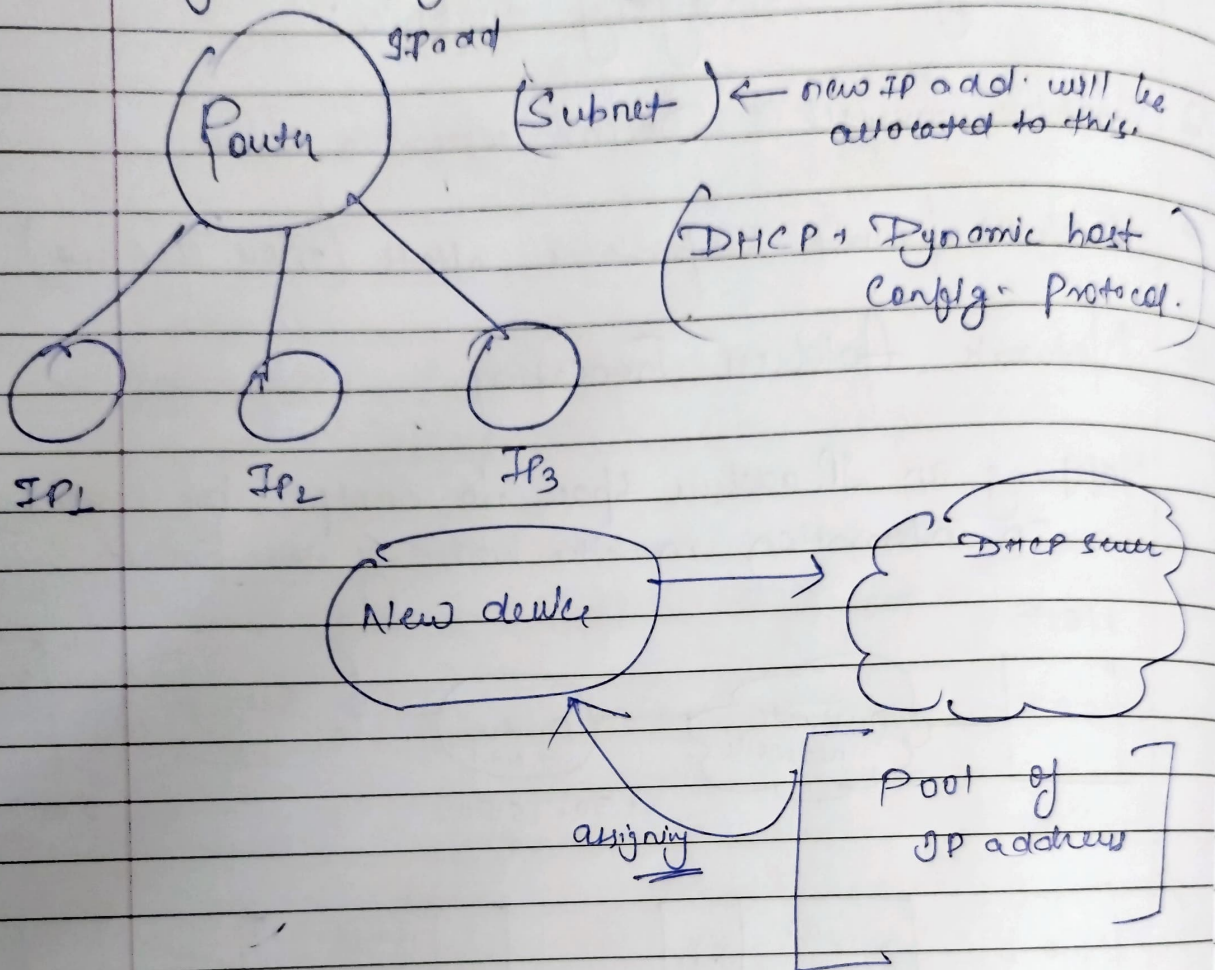 IP add
Router
(Subnet) ← new IP add. will be
allocated to this.
(DHCP → Dynamic host
Config. Protocol.)
IP1
IP2
IP3
New device
DHCP server
assigning
Pool of
IP address